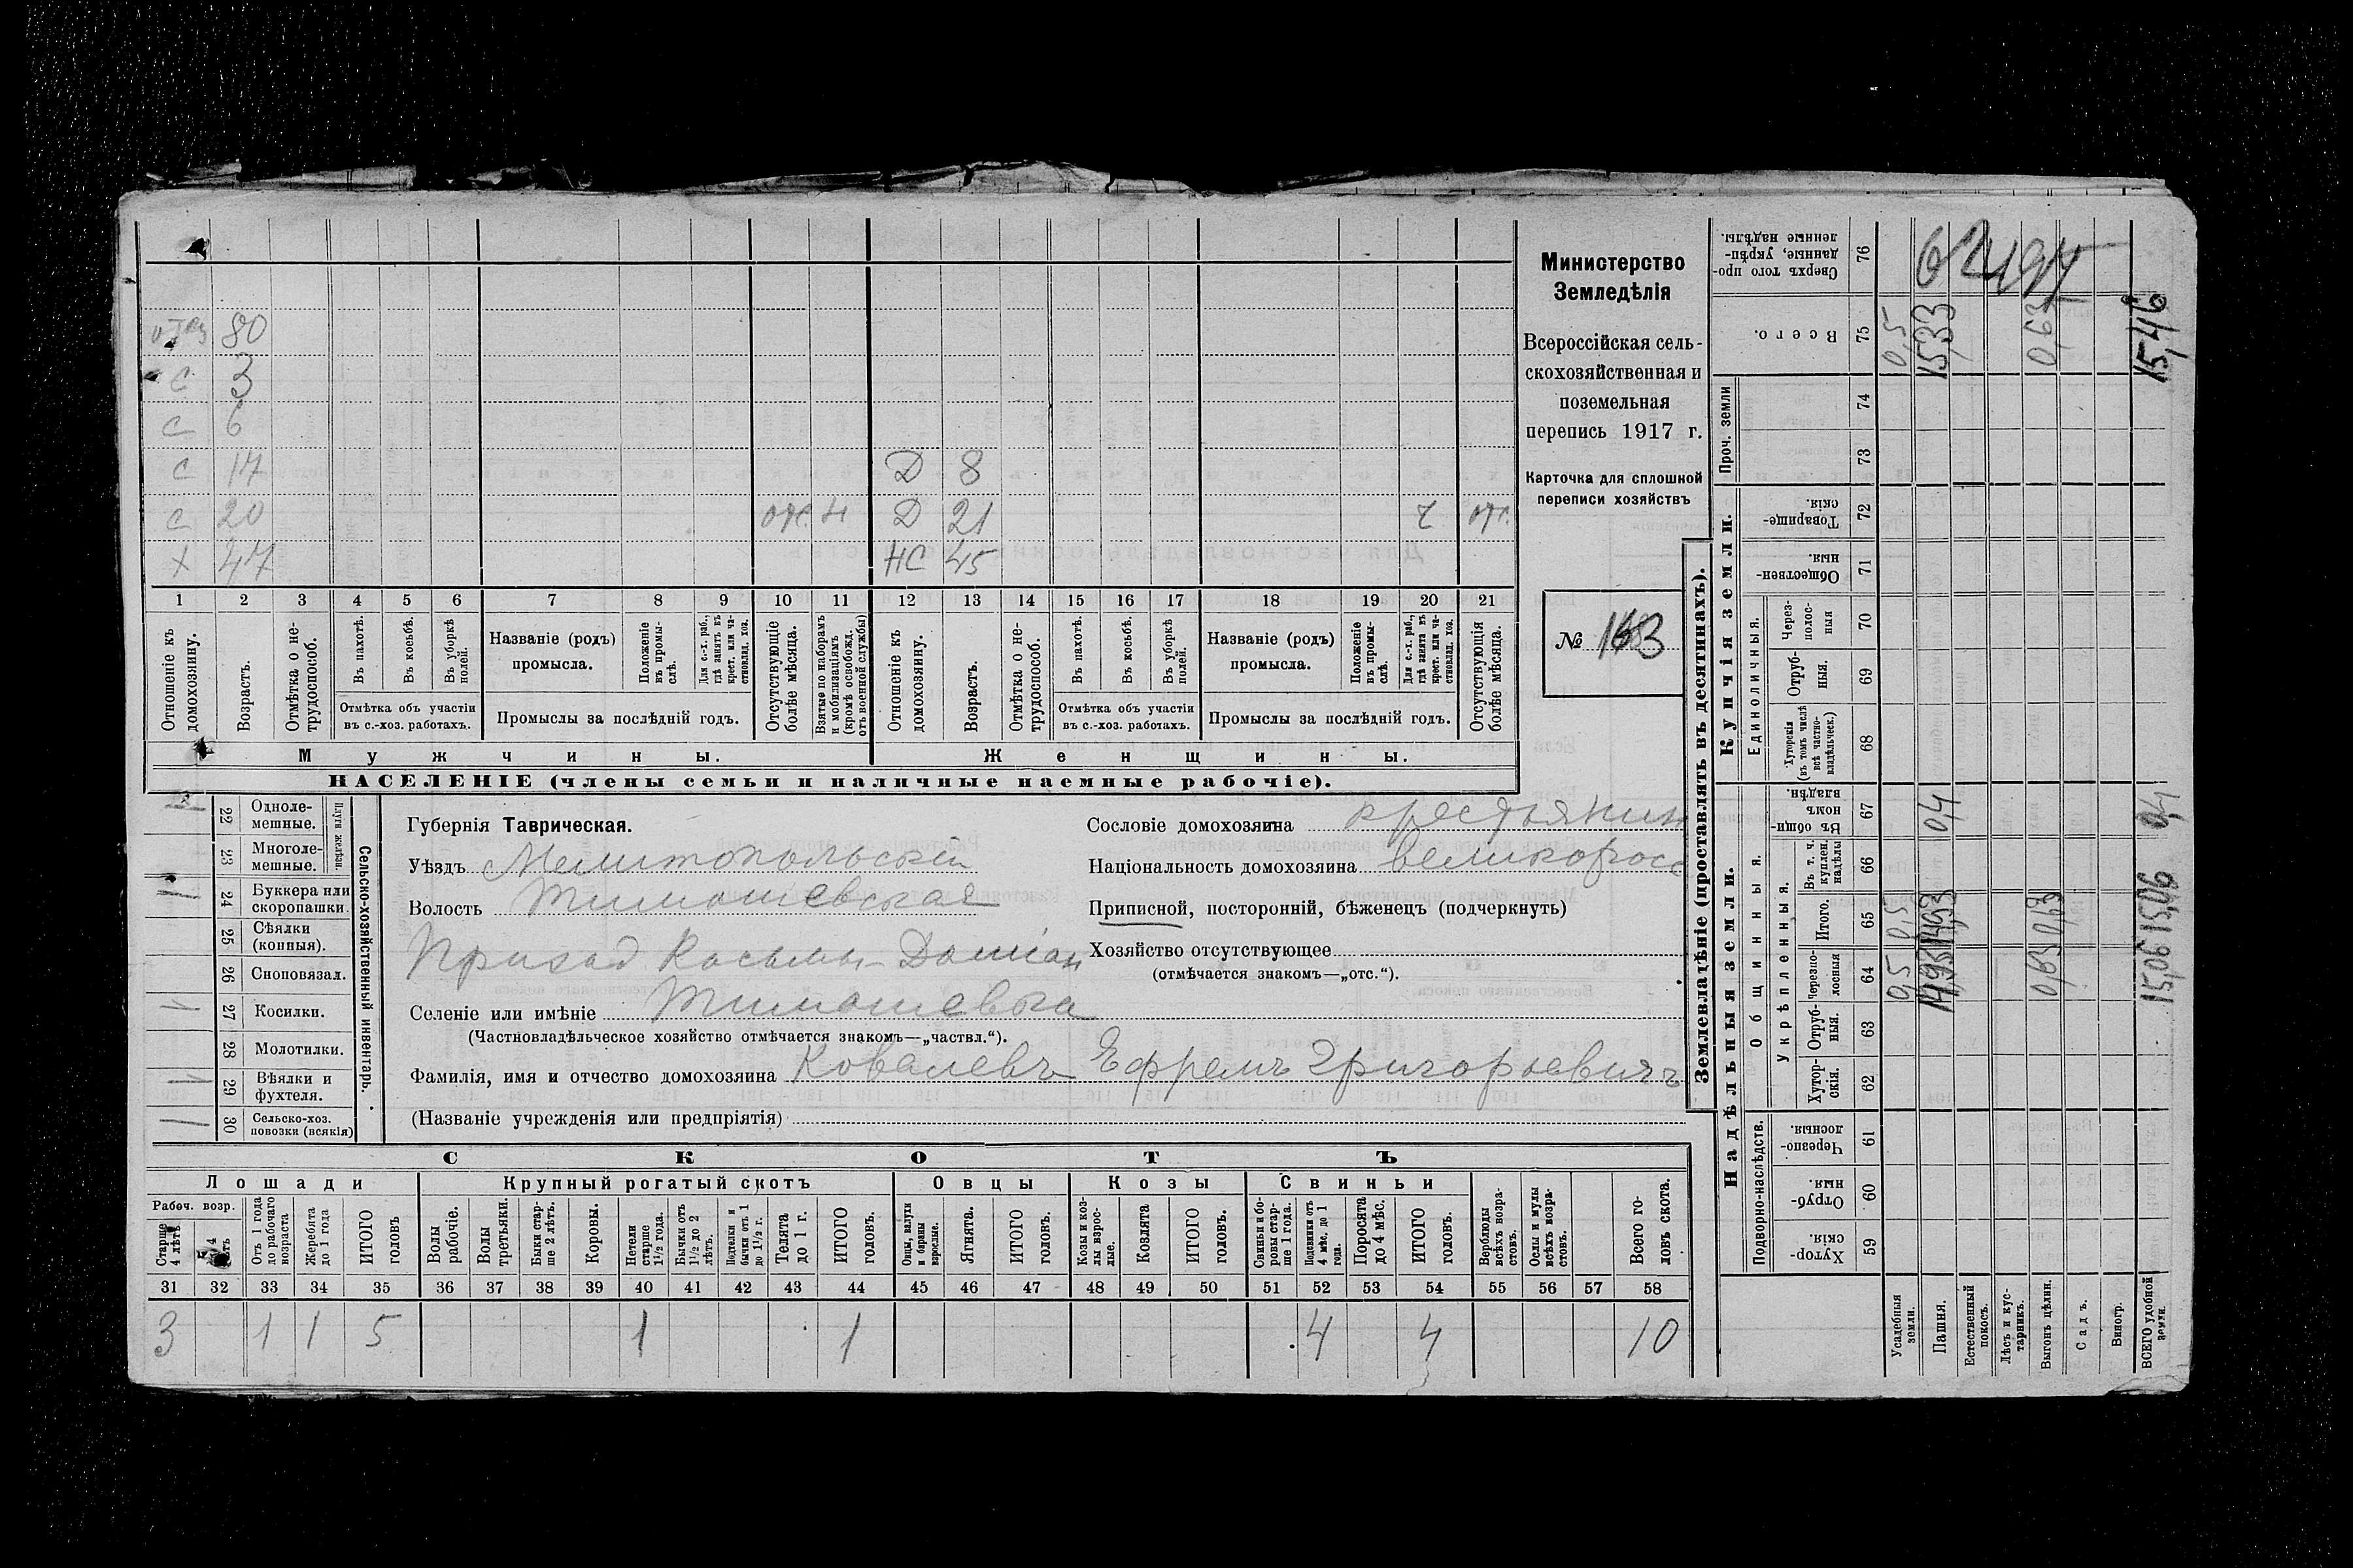 отец 80
С 3
С 6
С 17 Д 8
С 20 отс. Н Д 21 отс.
Х 47 НС 45
1 2 3 4 5 6 7 8 9 10 11 12 13 14 15 16 17 18 19 20 21
Отношеніе къ домохозяину.
Возрастъ.
Отмѣтка о не-
трудоспособ.
Въ пахотѣ.
Въ косьбѣ.
Въ уборкѣ полей.
Отмѣтка объ участіи
въ с.-хоз. работахъ.
Названіе (родъ)
промысла.
Положеніе въ промы-
слѣ.
Для с.-х. раб., гдѣ занятъ въ крест. или ча-
стновлад. хоз.
Промыслы за послѣдній годъ.
Отсутствующіе болѣе мѣсяца.
Взятые по наборамъ и мобилизаціямъ (кромѣ освобожд. отъ военной службы)
Отношеніе къ домохозяину.
Возрастъ.
Отмѣтка о не-
трудоспособ.
Въ пахотѣ.
Въ косьбѣ.
Въ уборкѣ полей.
Отмѣтка объ участіи
въ с.-хоз. работахъ.
Названіе (родъ)
промысла.
Положеніе въ промы-
слѣ.
Для с.-х. раб., гдѣ занята въ крест. или ча-
стновлад. хоз.
Промыслы за послѣдній годъ.
Отсутствующія болѣе мѣсяца.
Мужчины. Женщины.
НАСЕЛЕНІЕ (члены семьи и наличные наемные рабочіе).
Министерство
Земледѣлія
Всероссійская сель-
скохозяйственная и
поземельная
перепись 1917 г.
Карточка для сплошной
переписи хозяйствъ
№ 163
Сельско-хозяйственный инвентарь.
Плуги желѣзн.
22 Одноле-
мешные.
23 Многоле-
мешные.
24 Буккера или
скоропашки
25 Сѣялки
(конныя).
26 Сноповязал.
27 Косилки.
28 Молотилки.
29 Вѣялки и
фухтеля.
30 Сельско-хоз.
повозки (всякія)
Губернія Таврическая.
Уѣздъ Мелитопольскій
Волость Тимошевская
Приход Косьмы-Даміан
Селеніе или имѣніе Тимошевка
(Частновладѣльческое хозяйство отмѣчается знакомъ—„частвл.“).
Фамилія, имя и отчество домохозяина Ковалевъ Ефремъ Григорьевичъ
(Названіе учрежденія или предпріятія)
Сословіе домохозяина крестьянин
Національность домохозяина великоросс
Приписной, посторонній, бѣженецъ (подчеркнуть)
Хозяйство отсутствующее
(отмѣчается знакомъ—„отс.“).
СКОТЪ
Лошади Крупный рогатый скотъ Овцы Козы Свиньи
Рабоч. возр.
Старше 4 лѣтъ
Отъ 1 года до рабочаго возраста
Жеребята до 1 года
ИТОГО головъ
Волы рабочіе.
Волы третьяки.
Быки стар-
ше 2 лѣтъ.
Коровы.
Нетели старше 1½ года.
Бычки отъ 1½ до 2 лѣтъ.
Подтелки и бычки отъ 1 до 1½ г.
Телята до 1 г.
ИТОГО головъ.
Овцы, валухи и бараны взрослые.
Ягнята.
ИТОГО головъ.
Козы и коз-
лы взрос-
лые.
Козлята
ИТОГО головъ.
Свиньи и бо-
ровы стар-
ше 1 года.
Подсвинки отъ 4 мѣс. до 1 года.
Поросята до 4 мѣс.
ИТОГО головъ.
Верблюды всѣхъ возра-
стовъ.
Ослы и мулы всѣхъ возра-
стовъ.
Всего го-
ловъ скота.
31 32 33 34 35 36 37 38 39 40 41 42 43 44 45 46 47 48 49 50 51 52 53 54 55 56 57 58
3 1 1 5 1 1 4 4 10
Землевладѣніе (проставлять въ десятинахъ).
Надѣльныя земли. Купчія земли. Проч. земли
Подворно-наслѣдств.
Общинныя.
Укрѣпленныя.
Единоличныя.
Хутор-
скія. 59
Отруб-
ныя. 60
Черезпо-
лосныя 61
Хутор-
скія. 62
Отруб-
ныя. 63
Черезпо-
лосныя 64
Итого. 65
Въ т. ч. куплен. надѣлы 66
Въ общин-
номъ владѣн. 67
Хуторскія (въ томъ числѣ всѣ частно-
владѣльческ.) 68
Отруб-
ныя. 69
Через-
полос-
ныя 70
Обществен-
ныя. 71
Товарище-
скія. 72
73
74
Всего. 75
Сверхъ того про-
данные, укрѣп-
ленные надѣлы. 76
Усадебныя земли. 0,5 0,5 0,5
Пашня. 14,93 14,93 0,4 15,33
Естественный покосъ.
Лѣсъ и кус-
тарникъ.
Выгонъ цѣлин. 0,63 0,63 0,63
Садъ.
Виногр.
ВСЕГО удобной земли. 15,06 15,06 0,4 15,46